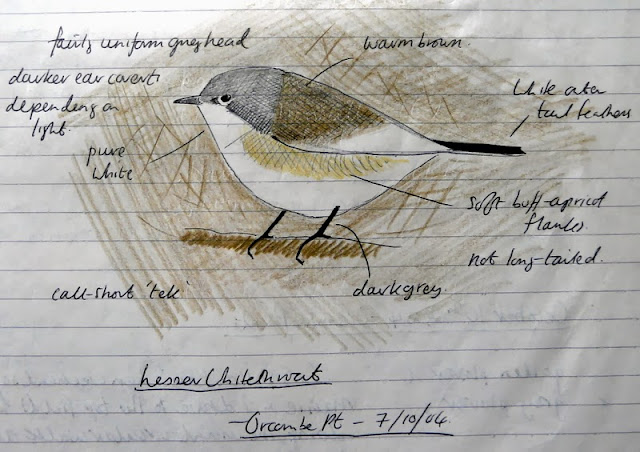 fairly uniform grey head
warm brown
darker ear coverts
depending on
light.
white outer
tail feathers
pure
white
soft buff-apricot
flanks.
not long-tailed.
call-short 'tek'
dark grey
Lesser Whitethroat
- Orcombe Pt - 7/10/04.